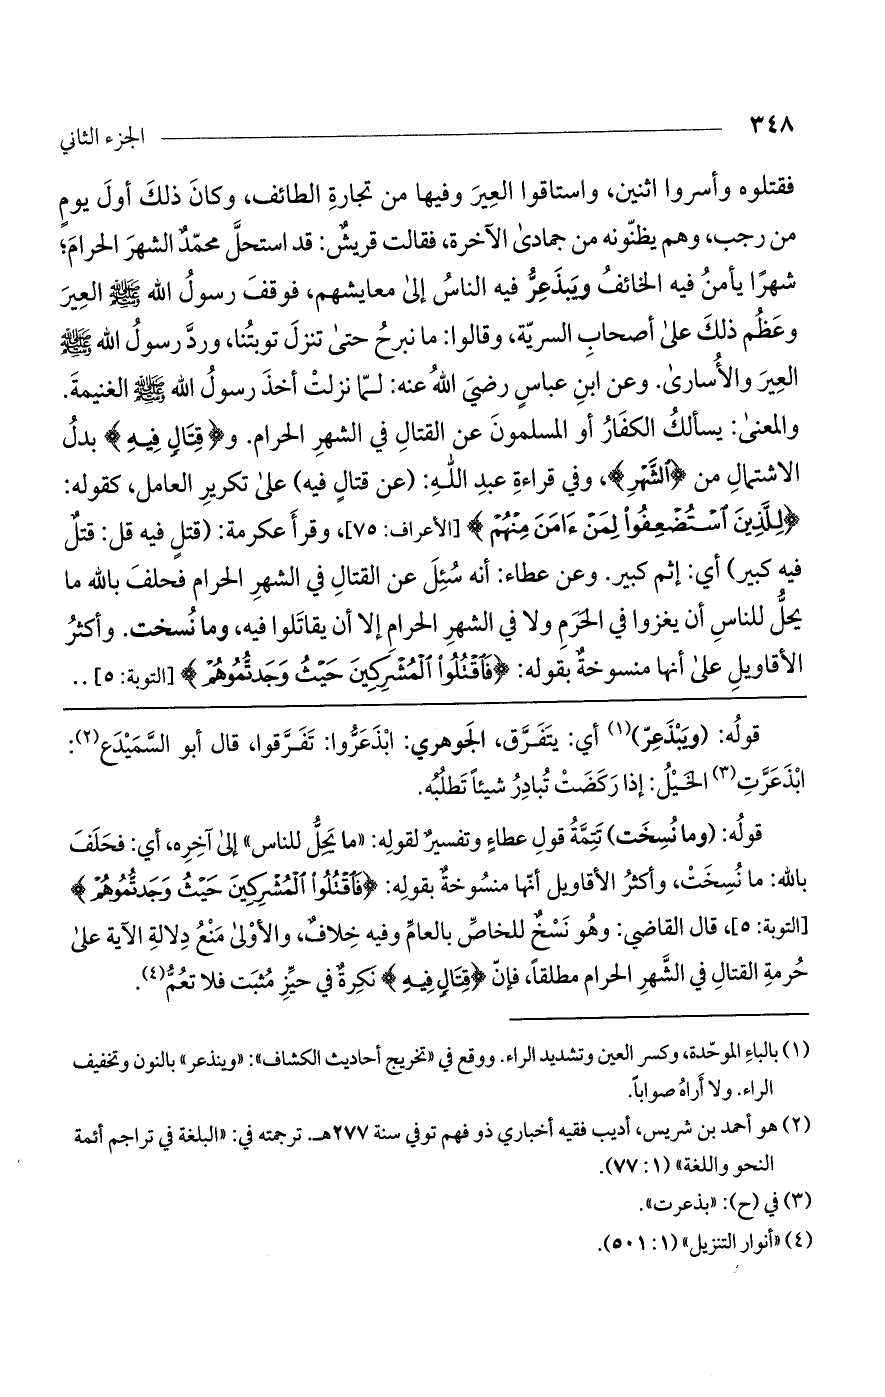 ٣٤٨ الجزء الثاني
فقتلوه وأسروا اثنين، واستاقوا العِيرَ وفيها من تجارةِ الطائف، وكانَ ذلكَ أول يومٍ
من رجب، وهم يظنّونه من جمادىٰ الآخرة، فقالت قريشٌ: قد استحلَّ محمّدٌ الشهرَ الحرامَ؛
شهرًا يأمنُ فيه الخائفُ ويَبذَعِرُّ فيه الناسُ إلىٰ معايشهم، فوقفَ رسولُ الله ﷺ العِيرَ
وعَظُم ذلكَ علىٰ أصحابِ السريّة، وقالوا: ما نبرحُ حتىٰ تنزلَ توبتُنا، وردَّ رسولُ الله ﷺ
العِيرَ والأُسارىٰ. وعن ابنِ عباسٍ رضيَ اللهُ عنه: لـمّا نزلتْ أخذَ رسولُ الله ﷺ الغنيمةَ.
والمعنىٰ: يسألكُ الكفارُ أو المسلمونَ عن القتالِ في الشهرِ الحرام. و﴿قِتَالٍ فِيهِ﴾ بدلُ
الاشتمالِ من ﴿ٱلشَّهْرِ﴾، وفي قراءةِ عبدِ اللـهِ: (عن قتالٍ فيه) علىٰ تكريرِ العامل، كقوله:
﴿لِلَّذِينَ ٱسْتُضْعِفُوا۟ لِمَنْ ءَامَنَ مِنْهُمْ﴾ [الأعراف: ٧٥]، وقرأَ عكرمة: (قتلٍ فيه قل: قتلٌ
فيه كبير) أي: إثم كبير. وعن عطاء: أنه سُئِلَ عن القتالِ في الشهرِ الحرام فحلفَ بالله ما
يحلُّ للناسِ أن يغزوا في الحَرَمِ ولا في الشهرِ الحرامِ إلا أن يقاتَلوا فيه، وما نُسخت. وأكثرُ
الأقاويلِ علىٰ أنها منسوخةٌ بقوله: ﴿فَٱقْتُلُوا۟ ٱلْمُشْرِكِينَ حَيْثُ وَجَدتُّمُوهُمْ﴾ [التوبة: ٥] ..
قولُه: (ويَبْذَعِرّ)(١) أي: يتَفَـرَّق، الجَوهري: ابْذَعَرُّوا: تَفَـرَّقوا، قال أبو السَّمَيْدَع(٢):
ابْذَعَرَّتِ(٣) الخَيْلُ: إذا رَكَضَتْ تُبادِرُ شيئاً تَطلُبُه.
قولُه: (وما نُسِخَت) تَتِمَّةُ قولِ عطاءٍ وتفسيرٌ لقولِه: «ما يَحِلُّ للناس» إلىٰ آخِرِه، أي: فحَلَفَ
بالله: ما نُسِخَتْ، وأكثرُ الأقاويل أنّها منسُوخةٌ بقولِه: ﴿فَٱقْتُلُوا۟ ٱلْمُشْرِكِينَ حَيْثُ وَجَدتُّمُوهُمْ﴾
[التوبة: ٥]، قال القاضي: وهُو نَسْخٌ للخاصِّ بالعامِّ وفيه خِلافٌ، والأَوْلىٰ مَنْعُ دِلالةِ الآية علىٰ
حُرمةِ القتالِ في الشَّهرِ الحرام مطلقاً، فإنّ ﴿قِتَالٍ فِيهِ﴾ نَكِرةٌ في حيِّزِ مُثبَت فلا تعُمُّ(٤).
(١) بالباءِ الموحّدة، وكسر العين وتشديد الراء. ووقع في «تخريج أحاديث الكشاف»: «وينذعر» بالنون وتخفيف
الراء. ولا أَراهُ صواباً.
(٢) هو أحمد بن شريس، أديب فقيه أخباري ذو فهم توفي سنة ٢٧٧هـ. ترجمته في: «البلغة في تراجم أئمة
النحو واللغة» (١: ٧٧).
(٣) في (ح): «بذعرت».
(٤) «أنوار التنزيل» (١: ٥٠١).